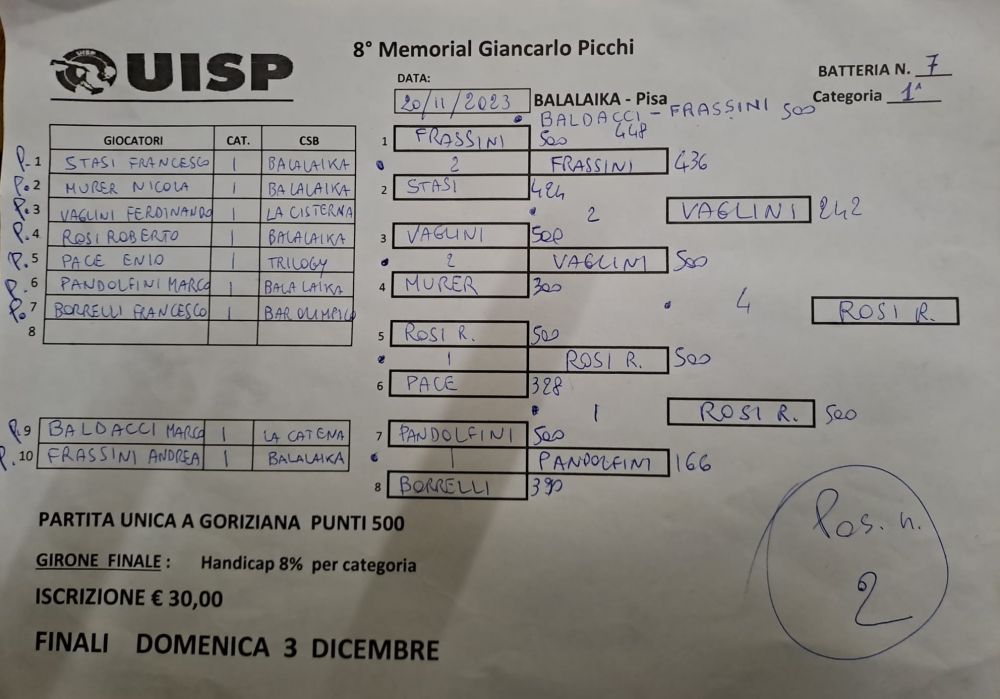 UISP
8° Memorial Giancarlo Picchi
BATTERIA N. 7
Categoria 1ª
DATA:
20/11/2023 BALALAIKA - Pisa
BALDACCI - FRASSINI 500
448
GIOCATORI CAT. CSB
P. 1 STASI FRANCESCO 1 BALALAIKA
P. 2 MURER NICOLA 1 BALALAIKA
P. 3 VAGLINI FERDINANDO 1 LA CISTERNA
P. 4 ROSI ROBERTO 1 BALALAIKA
P. 5 PACE ENIO 1 TRILOGY
P. 6 PANDOLFINI MARCO 1 BALALAIKA
P. 7 BORRELLI FRANCESCO 1 BAR OLIMPICO
8
P. 9 BALDACCI MARCO 1 LA CATENA
P. 10 FRASSINI ANDREA 1 BALALAIKA
1 FRASSINI 500
2 FRASSINI 436
2 STASI 424
2 VAGLINI 242
3 VAGLINI 500
2 VAGLINI 500
4 MURER 300
4 ROSI R.
5 ROSI R. 500
1 ROSI R. 500
6 PACE 328
1 ROSI R. 500
7 PANDOLFINI 500
1 PANDOLFINI 166
8 BORRELLI 390
PARTITA UNICA A GORIZIANA PUNTI 500
GIRONE FINALE : Handicap 8% per categoria
ISCRIZIONE € 30,00
FINALI DOMENICA 3 DICEMBRE
Pos. n.
2